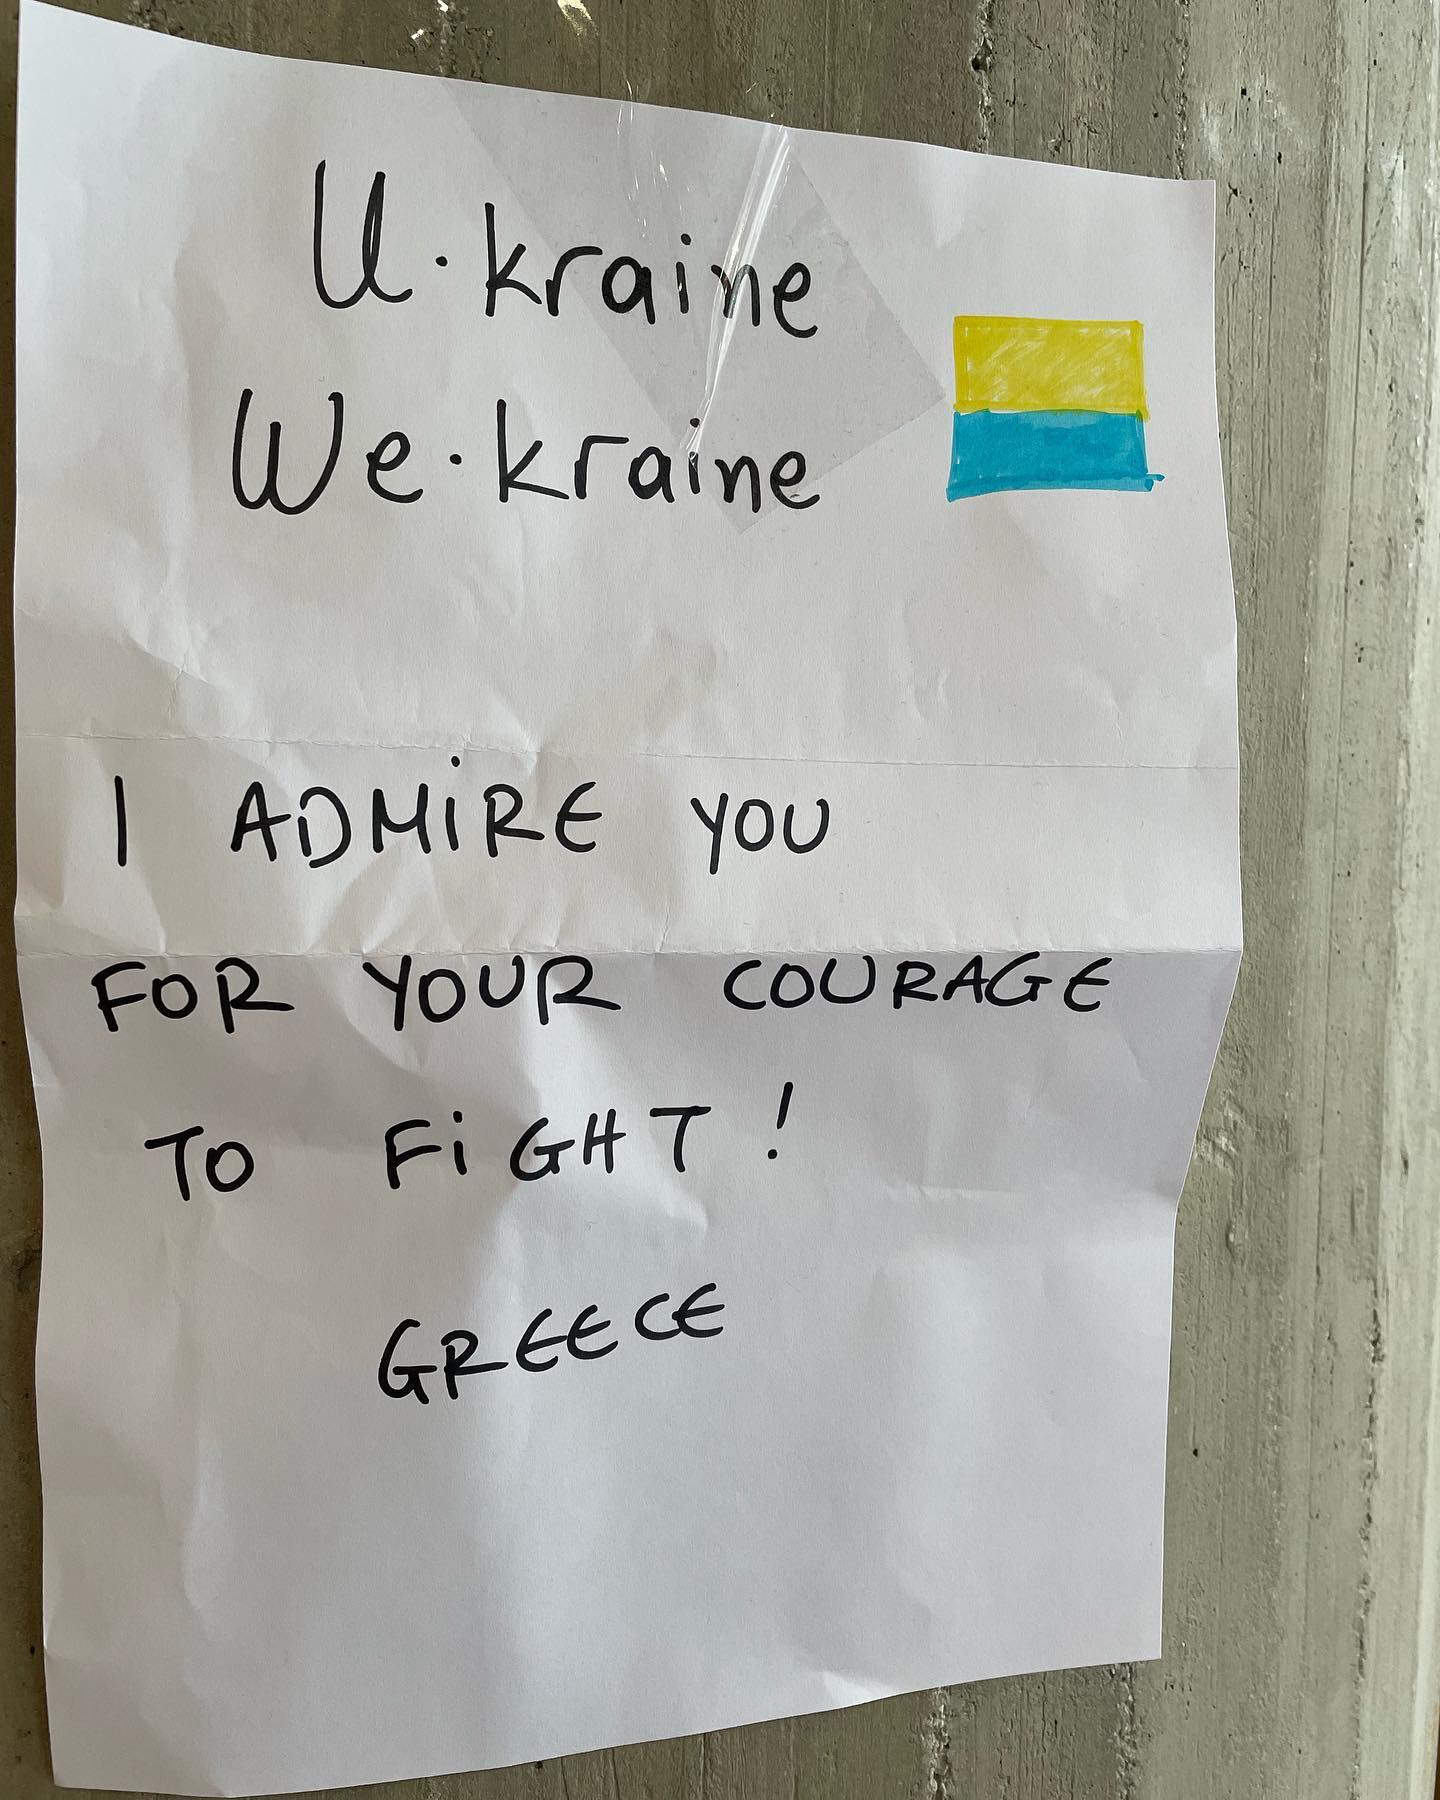 U·kraine
We·kraine
I ADMiRE YOU
FOR YOUR COURAGE
TO FiGHT!
GREECE